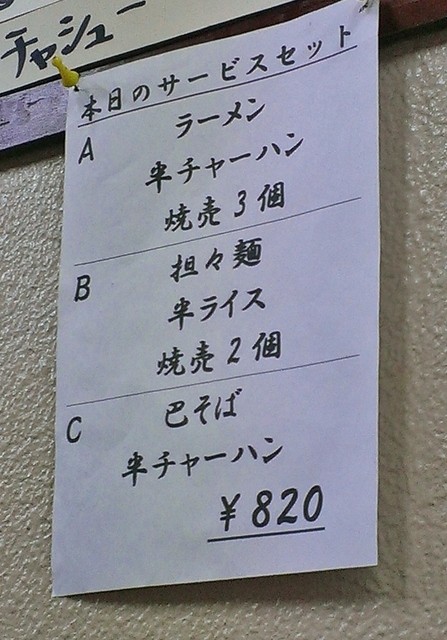 チャシュー
本日のサービスセット
A
ラーメン
半チャーハン
焼売3個
B
担々麺
半ライス
焼売2個
C
巴そば
半チャーハン
¥820